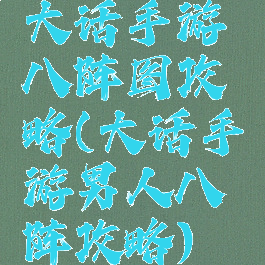 大话手游
八阵图攻
略(大话手
游男人八
阵攻略)